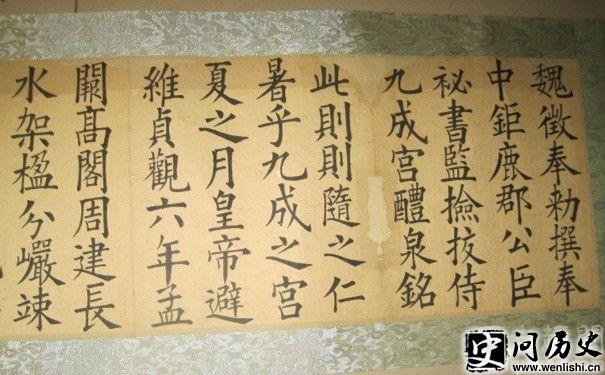 九成宮醴泉銘
祕書監撿挍侍
中鉅鹿郡公臣
魏徵奉勑撰奉
維貞觀六年孟
夏之月皇帝避
暑乎九成之宮
此則則隨之仁
水架楹分巖竦
闕高閣周建長
史问历史
www.wenlishi.cn